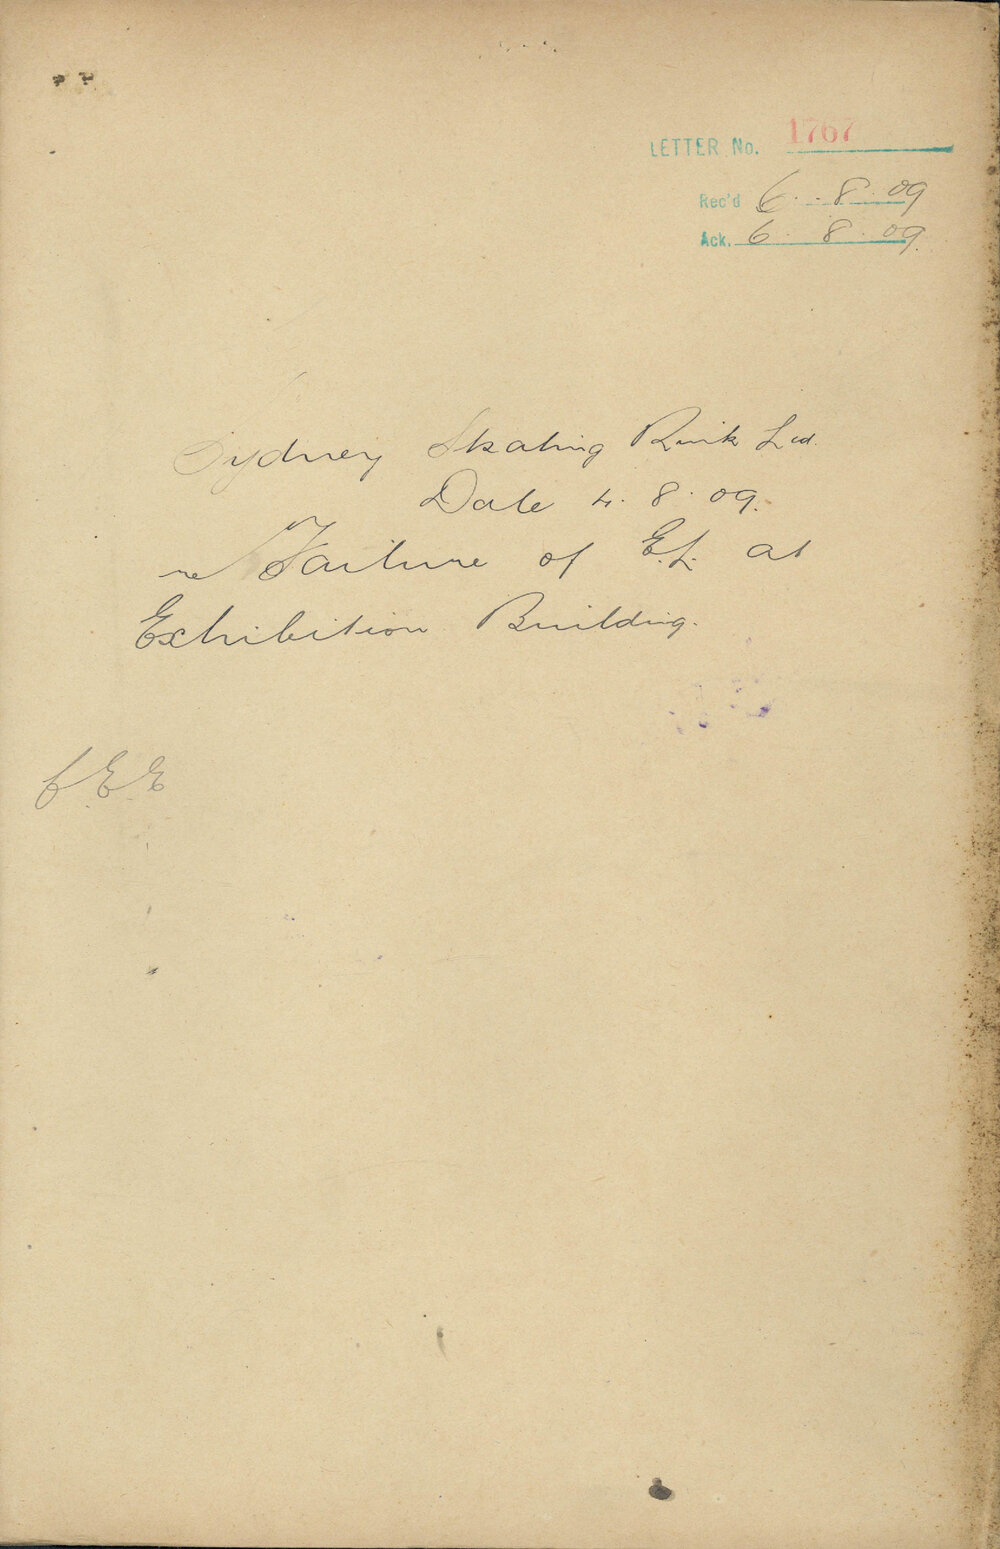 LETTER No. 1767
Rec'd 6.8.09
Ack. 6.8.09
Sydney Skating Rink Ltd.
Date 4.8.09.
re Failure of E.L. at
Exhibition Building.
C.E.E